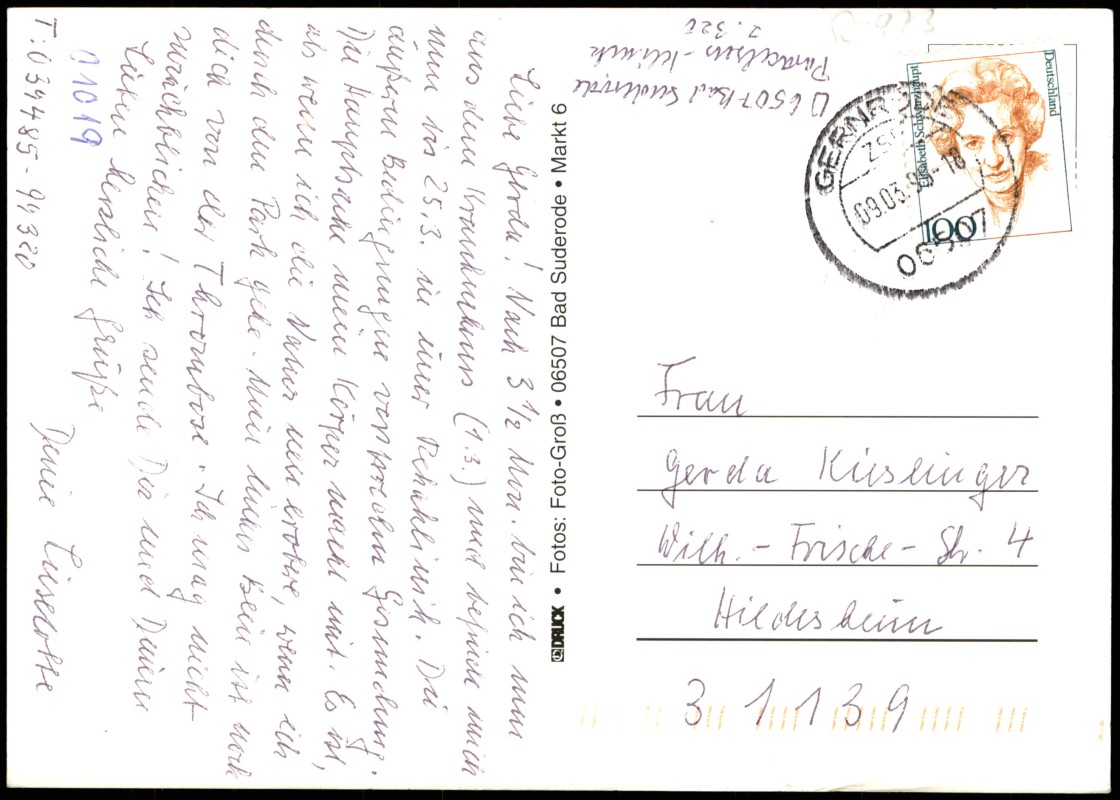 06507 Bad Suderode
Paracelsus-Klinik
Z. 320
Liebe Gerda! Nach 3 1/2 Mon. bin ich nun
aus dem Krankenhaus (1.3.) und befinde mich
nun bis 25.3. in einer Rehaklinik. Die
äußeren Bedingungen versprechen Gesundung.
Die Hauptsache mein Körper macht mit. Es ist,
als wenn ich die Natur neu erobre, wenn ich
durch den Park gehe - Mein linkes Bein ist noch
dick von der Thrombose. Ich mag nicht
zurückblicken! Ich sende Dir und Deinen
Lieben herzliche Grüße
Deine Liselotte
01019
T: 039485-99320
DRUCK • Fotos: Foto-Groß • 06507 Bad Suderode • Markt 6
Deutschland
Elisabeth Schwarzhaupt
100
GERNRODE
09.03.99-18
06507
Frau
Gerda Kieslinger
Wilh.-Frische-Str. 4
Hildesheim
31139